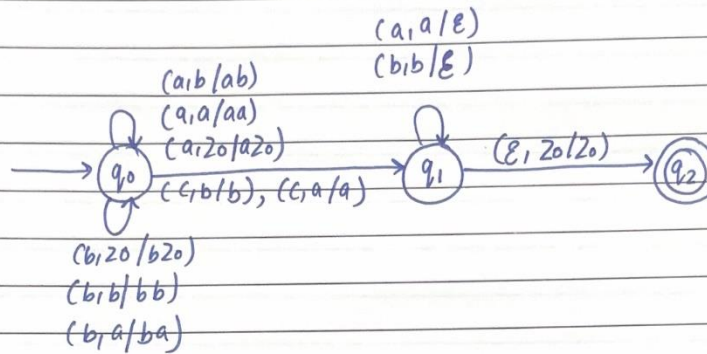 (a,a/ε)
(b,b/ε)
(a,b/ab)
(a,a/aa)
(a,z0/az0)
q0
(c,b/b), (c,a/a)
q1
(ε, z0/z0)
q2
(b,z0/bz0)
(b,b/bb)
(b,a/ba)